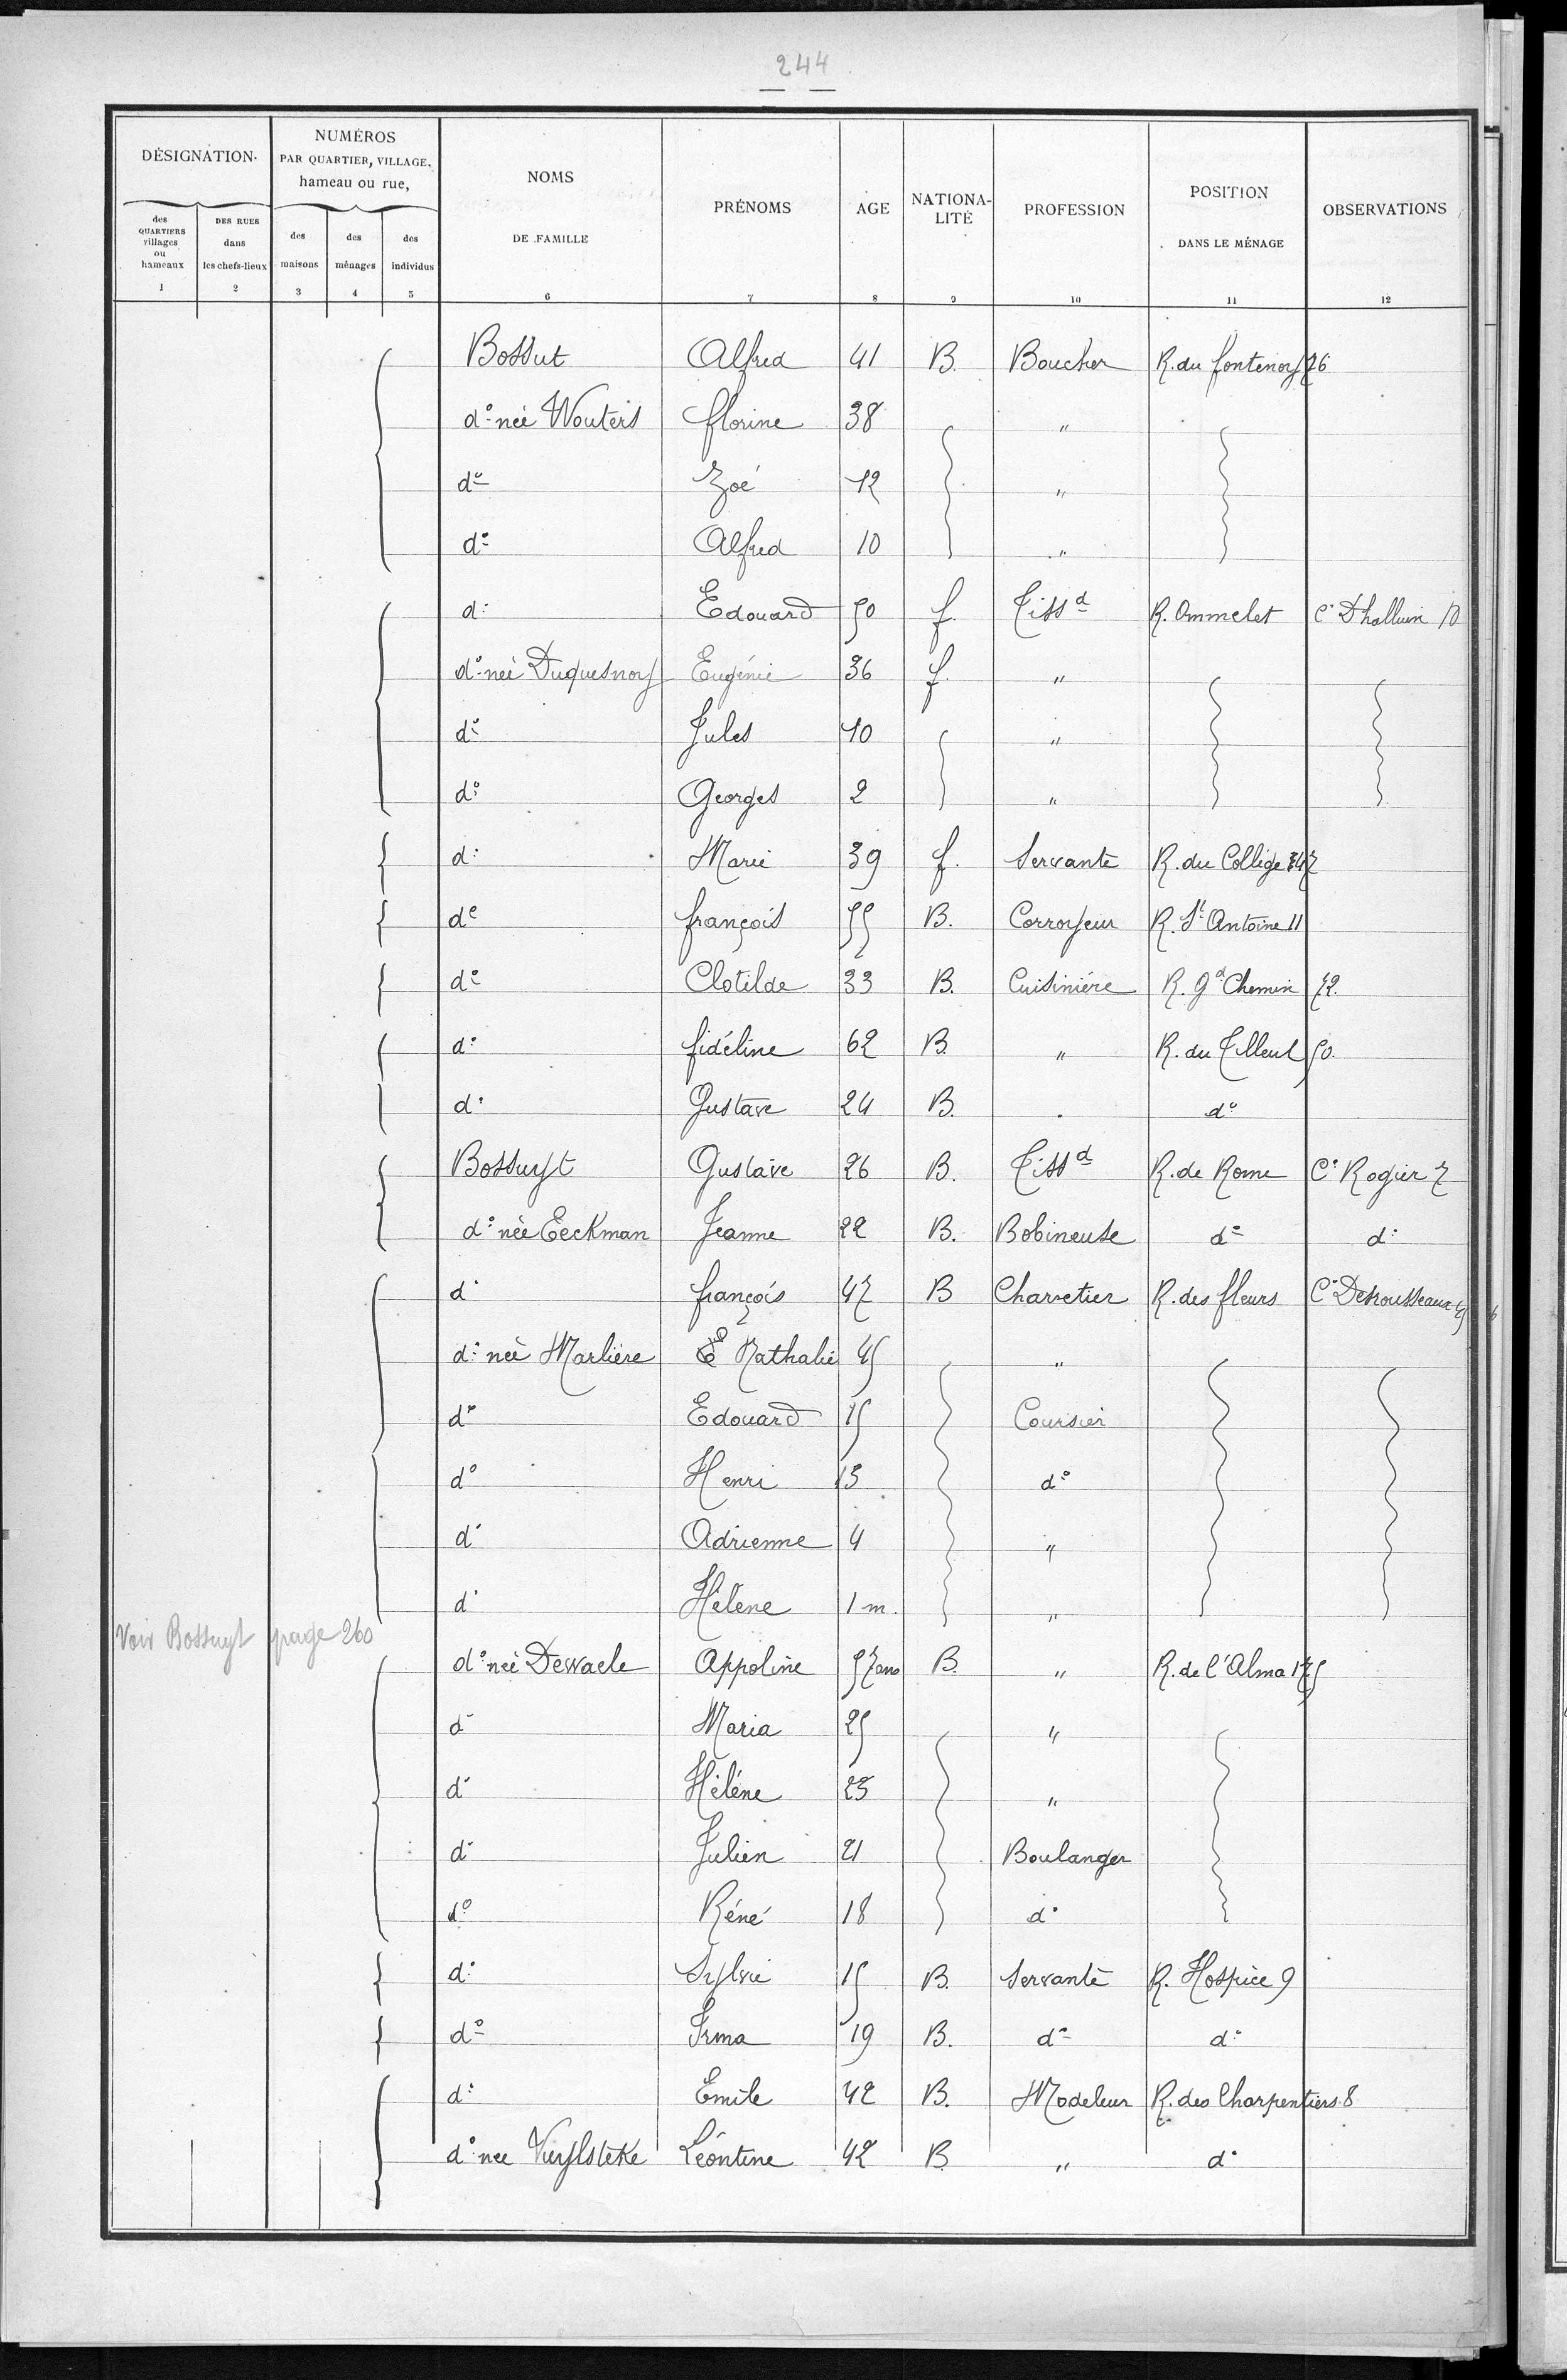 244
DÉSIGNATION
NUMÉROS PAR QUARTIER, VILLAGE, hameau ou rue,
NOMS DE FAMILLE
PRÉNOMS
AGE
NATIONA-LITÉ
PROFESSION
POSITION DANS LE MÉNAGE
OBSERVATIONS
des QUARTIERS villages ou hameaux
DES RUES dans les chefs-lieux
des maisons
des ménages
des individus
1 2 3 4 5 6 7 8 9 10 11 12
Bossut Alfred 41 B. Boucher R. du fontenoy 76
do née Wouters florine 38 "
do Zoé 12 "
do Alfred 10 "
do Edouard 50 f. Tissd R. Ommelet C. Dhalluin 10
do née Duquesnoy Eugénie 36 f. "
do Jules 10 "
do Georges 2 "
do Marie 39 f. Servante R. du Collège 147
do françois 55 B. Corroyeur R. St Antoine 11
do Clotilde 33 B. Cuisinière R. Gd Chemin 72.
do fidéline 62 B. " R. du Tilleul 50.
do Gustave 24 B. . do
Bossuyt Gustave 26 B. Tissd R. de Rome C. Rogier 7
do née Eeckman Jeanne 22 B. Bobineuse do do
do françois 47 B Charretier R. des fleurs C. Desrousseaux
do née Marlière Nathalie 45 "
do Edouard 15 Coursier
do Henri 13 do
do Adrienne 4 "
do Hélène 1 m. "
Voir Bossuyt page 260
do née Dewaele Appoline 57 ans B. " R. de l'Alma 175
do Maria 25 "
do Hélène 23 "
do Julien 21 Boulanger
do Réné 18 do
do Sylvie 15 B. Servante R. Hospice 9
do Irma 19 B. do do
do Emile 42 B. Modeleur R. des Charpentiers 8
do née Vuylsteke Léontine 42 B. " do